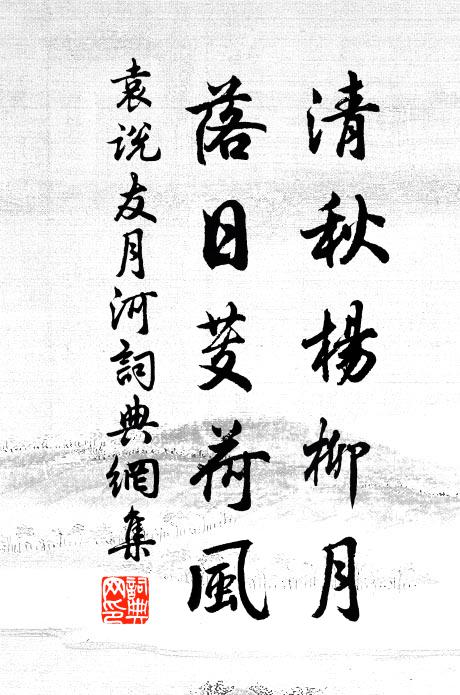 清秋楊柳月
落日芰荷風
袁說友月河詞典網集
詞典
网印